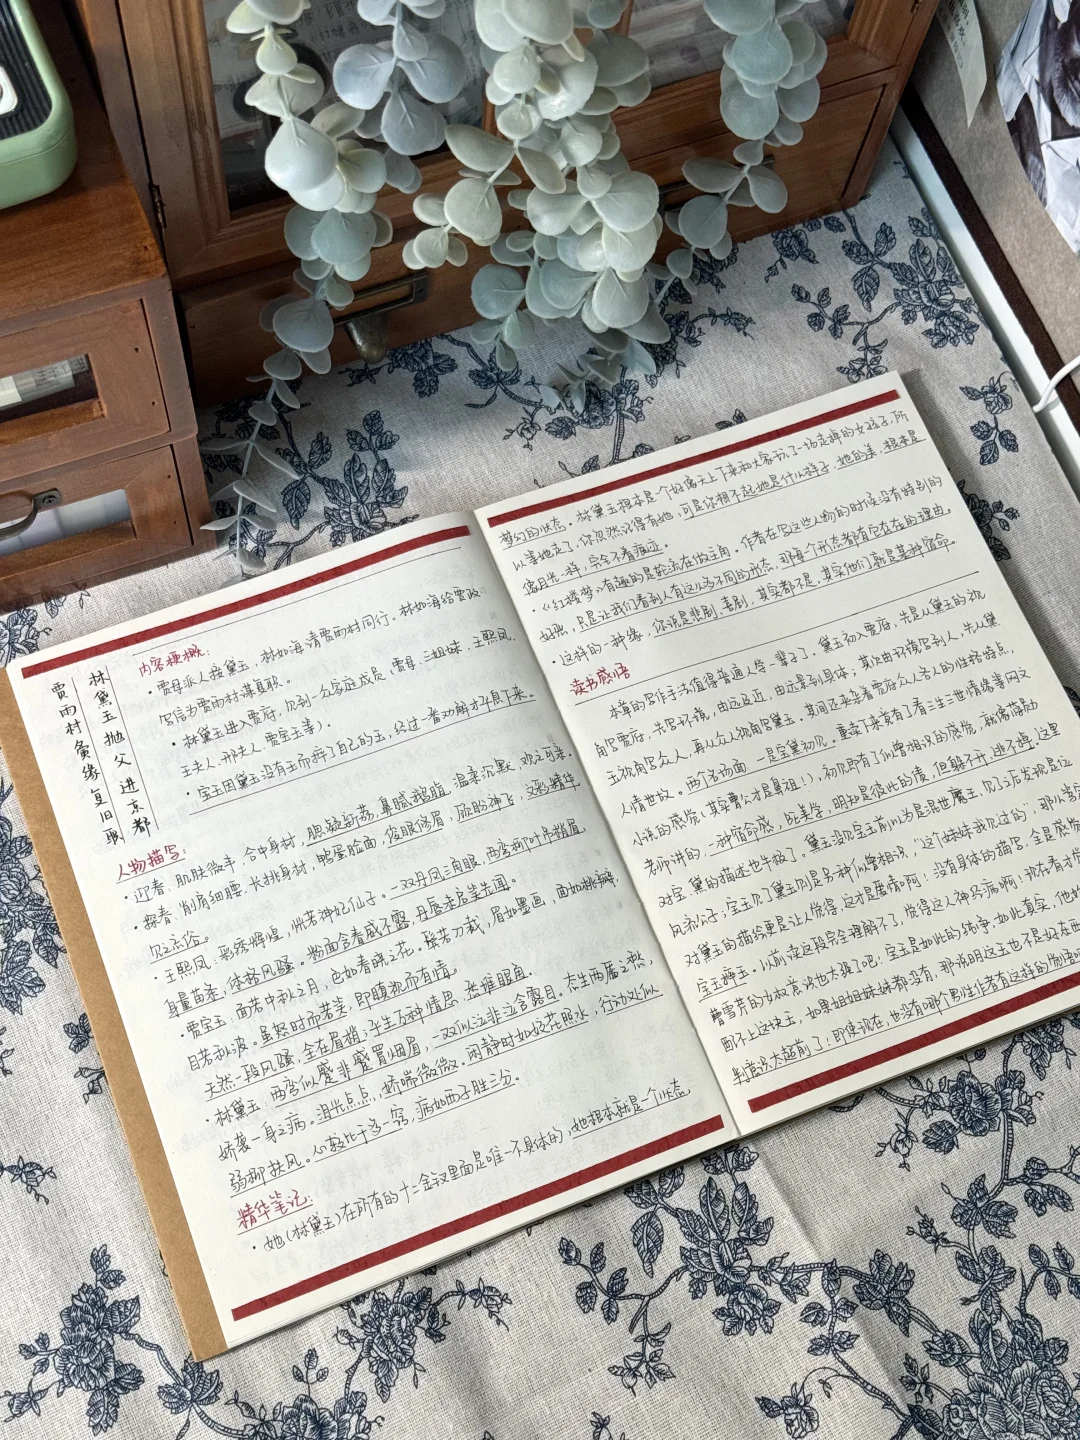 贾雨村夤缘复旧职
林黛玉抛父进京都
内容梗概:
·贾母派人接黛玉,林如海请贾雨村同行。林如海给贾政
写信为贾雨村谋复职。
·林黛玉进入贾府,见到众家庭成员(贾母、三姐妹、王熙凤、
王夫人、邢夫人、贾宝玉等)。
·宝玉因黛玉没有玉而摔了自己的玉,经过一番劝解才平息下来。
人物描写:
·迎春:肌肤微丰,合中身材,腮凝新荔,鼻腻鹅脂,温柔沉默,观之可亲。
·探春:削肩细腰,长挑身材,鸭蛋脸面,俊眼修眉,顾盼神飞,文彩精华
见之忘俗。
·王熙凤:彩绣辉煌,恍若神妃仙子。一双丹凤三角眼,两弯柳叶吊梢眉,
身量苗条,体格风骚。粉面含春威不露,丹唇未启笑先闻。
·贾宝玉:面若中秋之月,色如春晓之花。鬓若刀裁,眉如墨画,面如桃瓣,
目若秋波。虽怒时而若笑,即瞋视而有情。
天然一段风骚,全在眉梢;平生万种情思,悉堆眼角。
·林黛玉:两弯似蹙非蹙罥烟眉,一双似泣非泣含露目。态生两靥之愁,
娇袭一身之病。泪光点点,娇喘微微。闲静时如姣花照水,行动处似
弱柳扶风。心较比干多一窍,病如西子胜三分。
精华笔记:
·她(林黛玉)在所有的十二金钗里面是唯一不具体的,她根本就是一个状态,
梦幻的状态。林黛玉根本是一个好像天上下来和大家玩了一场走掉的女孩子,所
以等她走了,你仍然记得有她,可是你想不起她是什么样子,她的美,根本是
像月光一样,完全不着痕迹。
·《红楼梦》有趣的是轮流在做主角。作者在写这些人物的时候没有特别的
好恶,只是让我们看到人有这么多不同的形态,那每个形态都有它存在的理由。
·这样的一种缘,你说是悲剧、喜剧,其实都不是,其实他们就是某种宿命。
读书感悟
本章的写作手法值得普通人学一辈子了。黛玉初入贾府,先是以黛玉的视
角写贾府,先写环境,由远及近,由远景到具体;其次由环境写到人,先以黛
玉视角写众人,再从众人视角写黛玉,其间还夹杂着贾府众人各人的性格特点,
人情世故。两个名场面,一是宝黛初见。重读下来竟有了看三生三世情缘等网文
小说的感觉(其实曹公才是鼻祖!),初见即有了似曾相识的感觉,就像蒋勋
老师讲的,一种宿命感,死美学,明知是彼此的债,但躲不开,逃不掉。这里
对宝、黛的描述也牛极了。黛玉没见宝玉前以为是混世魔王,见了之后发现是位
风流公子;宝玉见了黛玉则是另种似曾相识,"这个妹妹我见过的";那么
对黛玉的描绘更是让人觉得,这才是爱情啊!没有具体的描写,全是感觉
宝玉摔玉。以前读这段完全理解不了,觉得这人神经病啊!现在看才
曹雪芹的女权意识也太强了吧!宝玉是如此的纯净,如此真实,他
配不上这块玉,如果姐姐妹妹都没有,那说明这玉也不是好东西
判意识太超前了!即使现在,也没有哪个男性作者有这样的